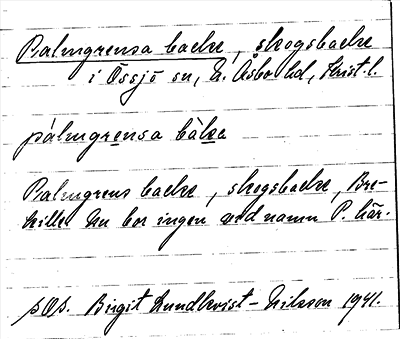 Palmgrensa backe, skogsbacke
i Össjö sn, N. Åsbo hd, Krist. l.
pàlmgrensa bàke
Palmgrens backe, skogsbacke, Bre-
kille. Nu bor ingen ved namn P. här.
sOs. Birgit Lundkvist-Nilsson 1941.